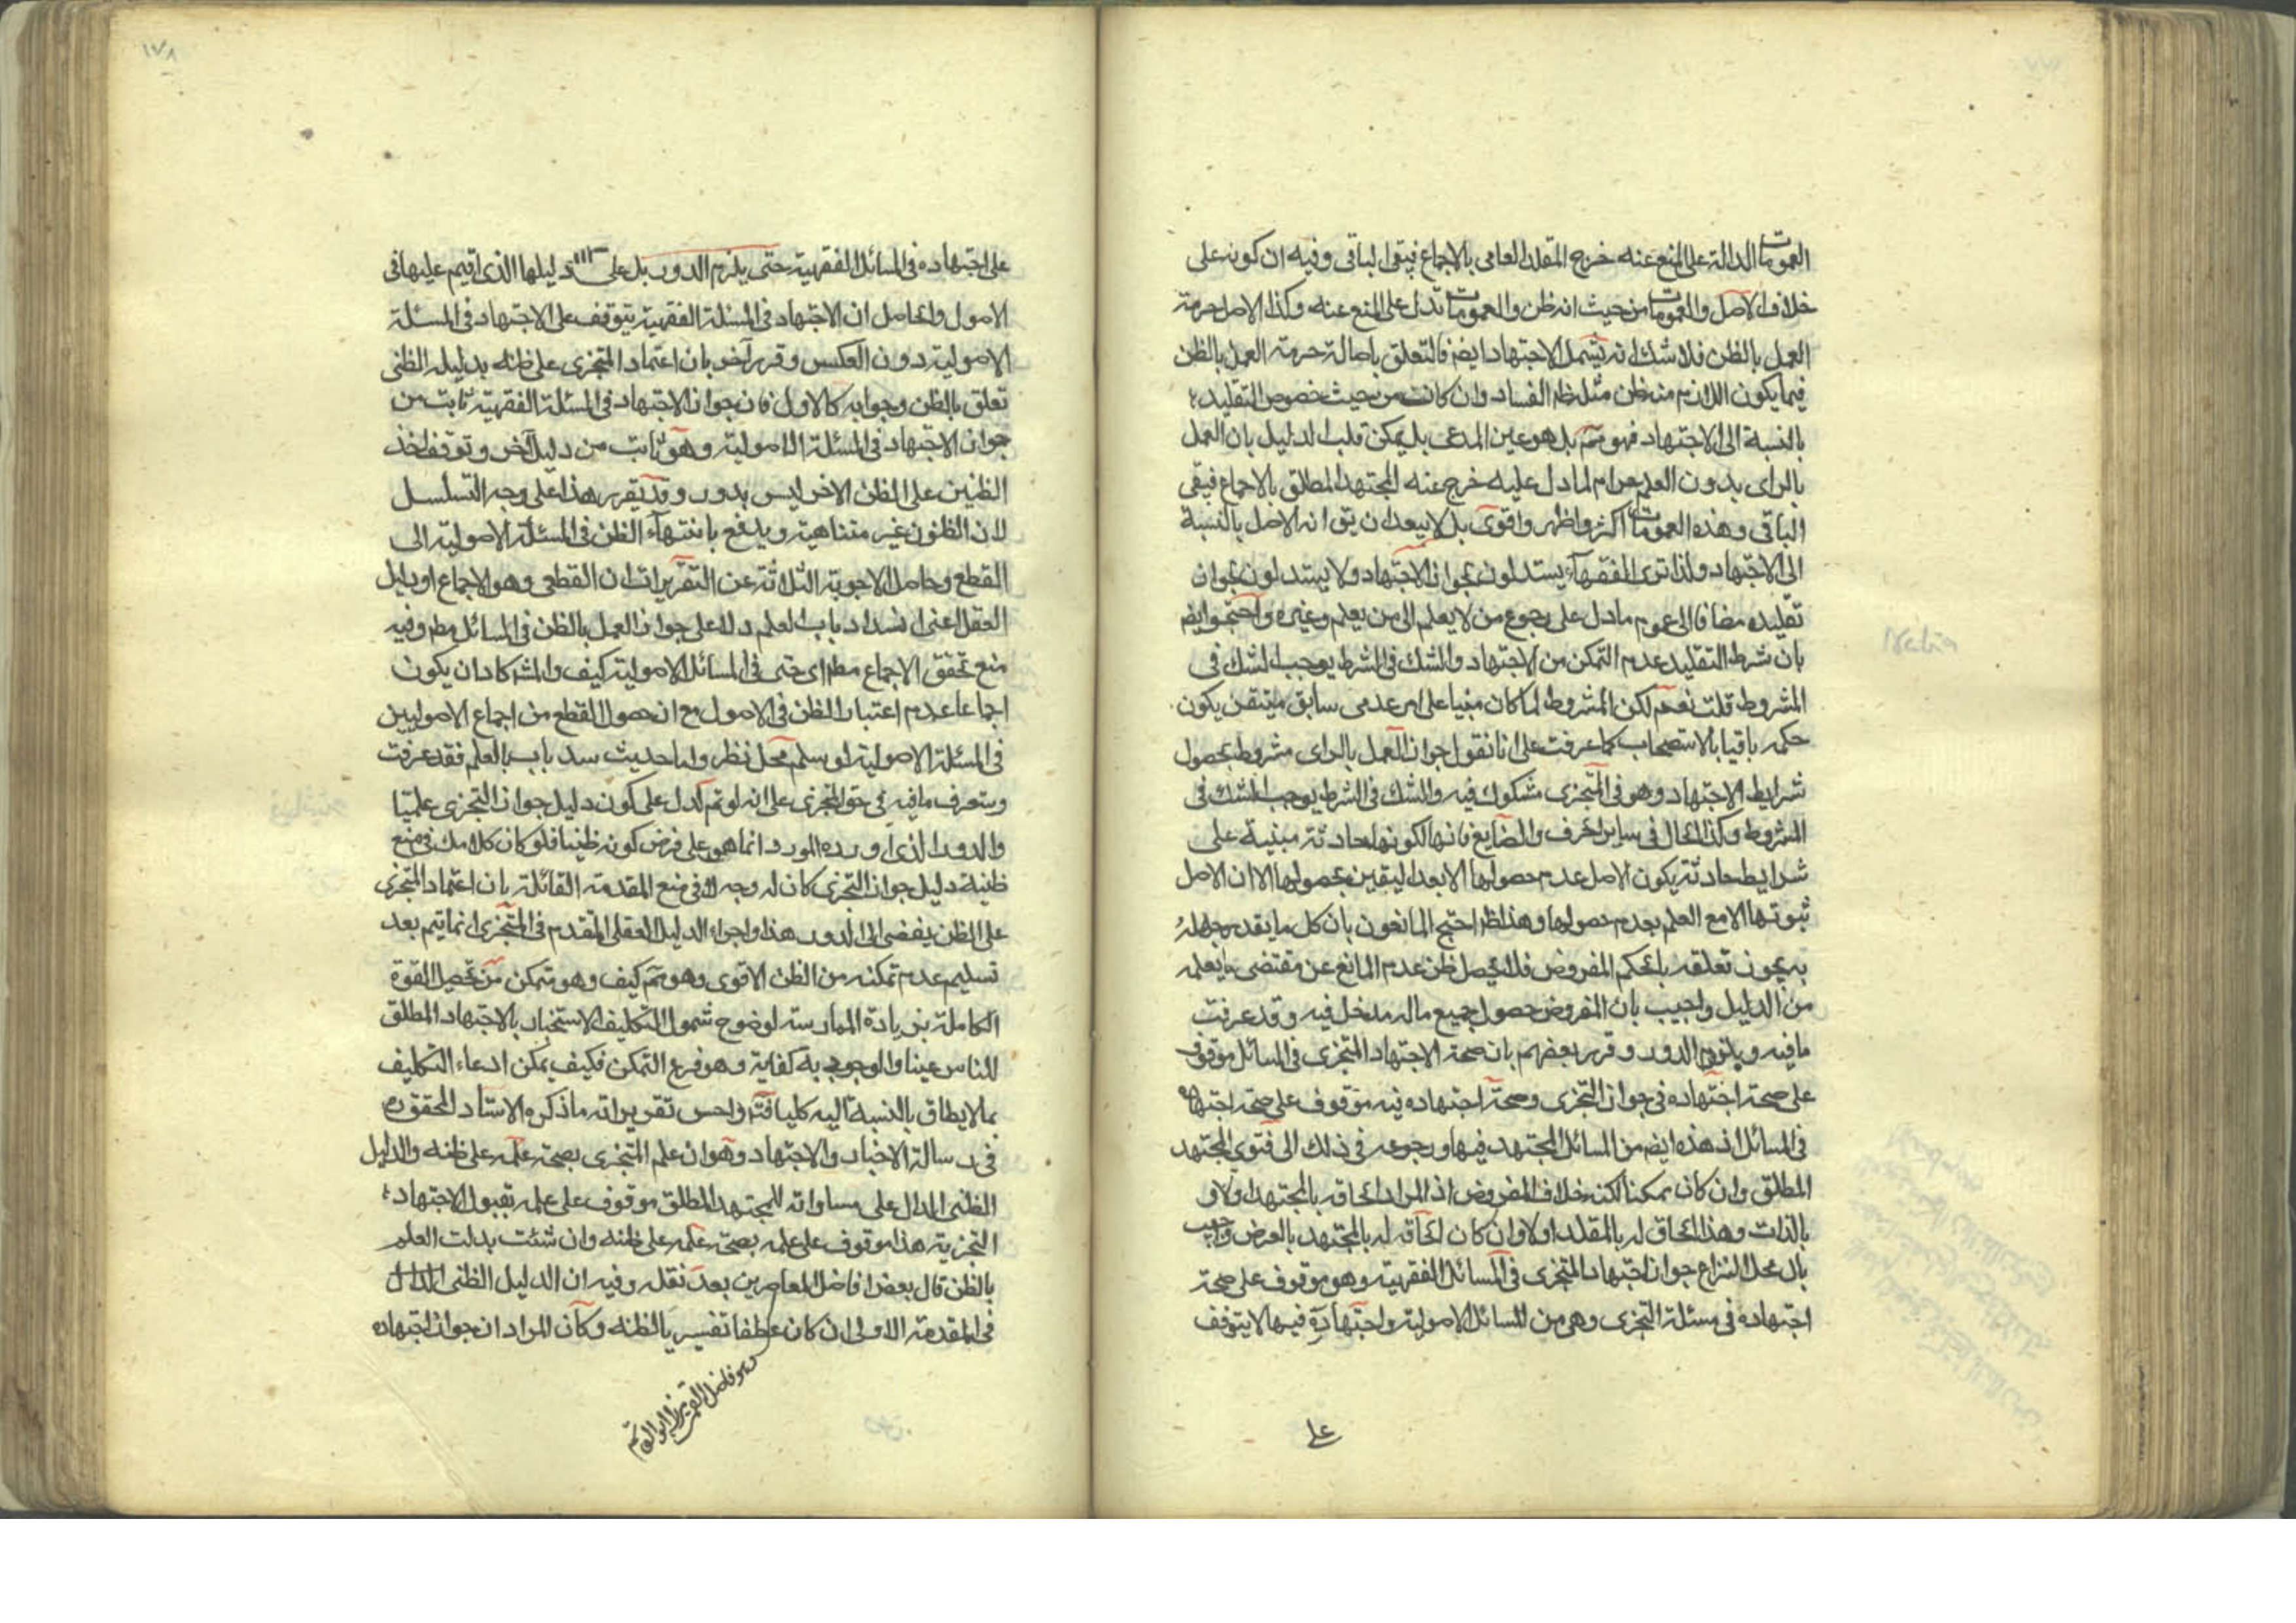 العمومات الدالة على المنع عنه خرج المقلد العامى بالاجماع فيبقى الباقى وفيه ان كونه على
خلاف الاصل والعمومات من حيث انه ظن والعمومات تدل على المنع عنه وكذا الاصل حرمة
العمل بالظن فلا شك انه يشمل الاجتهاد ايضا فالتعلق باصالة حرمة العمل بالظن
فيما يكون اللازم منه ظن مثله ظاهر الفساد وان كانت من حيث خصوص التقليد
بالنسبة الى الاجتهاد فهو مم بل هو عين المدعى بل يمكن قلب الدليل بان العمل
بالراى بدون العلم حرام لما دل عليه خرج عنه المجتهد المطلق بالاجماع فيبقى
الباقى وهذه العمومات اكثر واظهر واقوى بل لا يبعد ان يق انه الاصل بالنسبة
الى الاجتهاد ولذا ترى الفقهاء يستدلون بجواز الاجتهاد ولا يستدلون بجواز
تقليده مضافا الى عموم ما دل على رجوع من لا يعلم الى من يعلم وغيره واحتجوا ايضا
بان شرط التقليد عدم التمكن من الاجتهاد والشك فى الشرط يوجب الشك فى
المشروط قلت نعم لكن المشروط لما كان مبنيا على امر عدمى سابق متيقن يكون
حكمه باقيا بالاستصحاب كما عرفت على انا نقول جواز العمل بالراى مشروط بحصول
شرايط الاجتهاد وهو فى المتجزى مشكوك فيه والشك فى الشرط يوجب الشك فى
المشروط وكذا الحال فى ساير الحرف والصنايع فانها لكونها حادثة مبنية على
شرايط حادثة يكون الاصل عدم حصولها الا بعد اليقين بحصولها الا ان الاصل
ثبوتها الا مع العلم بعدم حصولها وهذا ظ احتج المانعون بان كل ما يقدر جهله
به يجوز تعلقه بالحكم المفروض فلا يحصل ظن عدم المانع عن مقتضى ما يعلمه
من الدليل واجيب بان المفروض حصول جميع ماله مدخل فيه وقد عرفت
ما فيه ويلزوم الدور وقرر بعضهم بان صحة الاجتهاد المتجزى فى المسائل موقوف
على صحة اجتهاده فى جواز التجزى وصحة اجتهاده فيه موقوف على صحة اجتهاده
فى المسائل اذ هذه ايضا من المسائل المجتهد فيها ورجوعه فى ذلك الى فتوى المجتهد
المطلق وان كان ممكنا لكنه خلاف المفروض اذ المراد الحاقه بالمجتهد اولا و
بالذات وهذا الحاق له بالمقلد اولا وان كان الحاقه له بالمجتهد بالعرض واجيب
بان محل النزاع جواز اجتهاد المتجزى فى المسائل الفقهية وهو موقوف على صحة
اجتهاده فى مسئلة التجزى وهى من المسائل الاصولية واجتهاده فيها لا يتوقف
على
١٧٨
على اجتهاده فى المسائل الفقهية حتى يلزم الدور بل على دليلها الذى اقيم عليها فى
الاصول والحاصل ان الاجتهاد فى المسئلة الفقهية يتوقف على الاجتهاد فى المسئلة
الاصولية دون العكس وقرر آخر بان اعتماد المتجزى على ظنه بدليله الظنى
تعلق بالظن وجوابه كالاول فان جواز الاجتهاد فى المسئلة الفقهية ثابت من
جواز الاجتهاد فى المسئلة الاصولية وهو ثابت من دليل آخر وتوقف اخذ
الظنين على الظن الاخر ليس بدور وقد يقرر هذا على وجه التسلسل
لان الظنون غير متناهية ويدفع بانتهاء الظن فى المسئلة الاصولية الى
القطع وحاصل الاجوبة الثلاثة عن التقريرات ان القطعى وهو الاجماع او دليل
العقل اعنى انسداد باب العلم دلا على جواز العمل بالظن فى المسائل مطم وفيه
منع تحقق الاجماع مطم اى حتى فى المسائل الاصولية كيف والمش كاد ان يكون
اجماعا عدم اعتبار الظن فى الاصول مع ان حصول القطع من اجماع الاصوليين
فى المسئلة الاصولية لو سلم محل نظر واما حديث سد باب العلم فقد عرفت
وستعرف ما فيه فى حق المتجزى على انه لو تم لدل على كون دليل جواز التجزى علميا
والدور الذى اورده المورد انما هو على فرض كونه ظنيا فلو كان كلامك فى منع
ظنية دليل جواز التجزى كان له وجه لا فى منع المقدمة القائلة بان اعتماد المتجزى
على الظن يفضى الى الدور هذا واجراء الدليل العقلى المتقدم فى المتجزى انما يتم بعد
تسليم عدم تمكنه من الظن الاقوى وهو مم كيف وهو متمكن من تحصيل القوة
الكاملة بزيادة الممارسة لوضوح شمول التكليف الاستخبار بالاجتهاد المطلق
للناس عينا والوجوب به كفاية وهو فرع التمكن فكيف يمكن ادعاء التكليف
بما لا يطاق بالنسبة اليه كليا فته واحسن تقريراته ما ذكره الاستاد المحقق ره
فى رسالة الاخبار والاجتهاد وهو ان علم المتجزى بصحة علمه على ظنه والدليل
الظنى الدال على مساواته للمجتهد المطلق موقوف على علمه بقبول الاجتهاد
التجزية هذا موقوف على علمه بصحة علمه على ظنه وان شئت بدلت العلم
بالظن قال بعض افاضل المعاصرين بعد نقله وفيه ان الدليل الظنى الدال
فى المقدمة الاولى ان كان عطفا تفسيريا لظنه وكان المراد ان جواز اجتهاده
وهو فاضل القمى ميرزا ابو القاسم